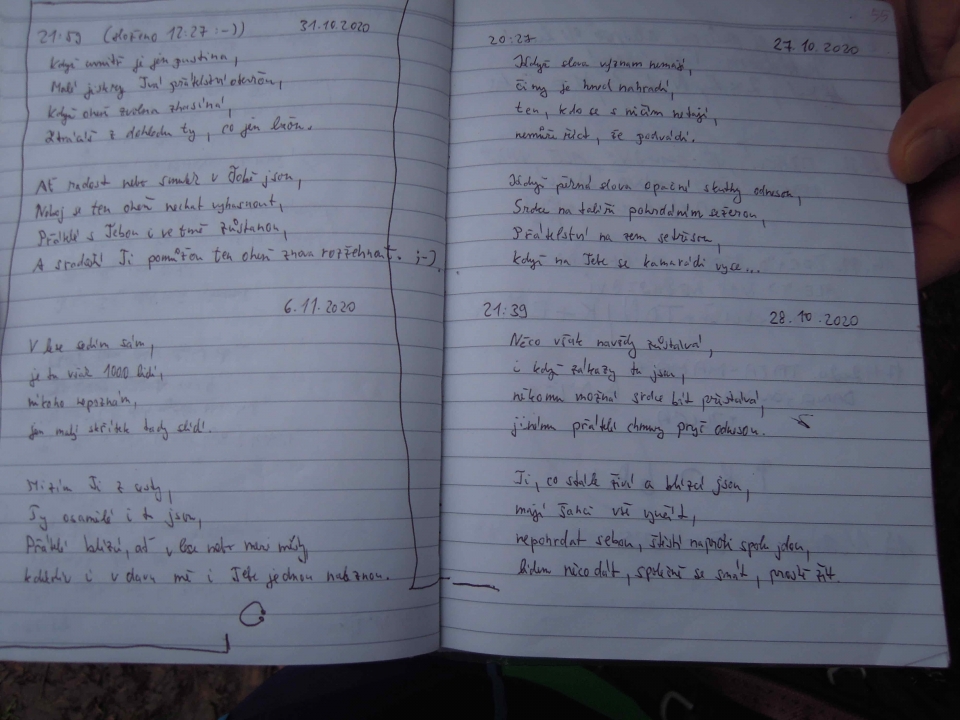 21:59 (složeno 12:27 :-)) 31.10.2020
Když uvnitř je jen pustina,
Malé jiskry Tvá přátelství
Když oheň zvolna zhasíná,
Ztrácíš z dohledu ty, co jen
Ať radost nebo smutek v Tobě jsou,
Neboj se ten oheň nechat vyhasnout,
Přátelé s Tebou i ve tmě zůstanou,
A s radostí Ti pomůžou ten oheň znova rozžehnout. ;-)
6.11.2020
V lese sedím sám,
je tu však 1000 lidí,
nikoho nepoznám,
jen malý skřítek tady slídí.
Mizím Ti z cesty,
Ty osamělé i tu jsou,
Přátelé blízcí, ať v lese nebo mezi městy
i v davu mě i Tebe jednou naleznou.
55
20:27 27.10.2020
Když slova význam nemají,
činy je hned nahradí,
ten, kdo se s ničím netají,
nemůže říct, že podvádí.
Když pěkná slova opačné skutky odnesou,
Srdce na talíři pohrdáním sežerou,
Přátelství na zem
když na Tebe se kamarádi
21:39 28.10.2020
Něco však navždy zůstává,
i když zákazy tu jsou,
někomu možná srdce bít přestává,
jinému přátelé chmury pryč odnesou.
Ti, co stále živí a blízcí jsou,
mají šanci vše
nepohrdat sebou, štěstí naproti spolu jdou,
lidem něco dát, společně se smát, prostě žít.